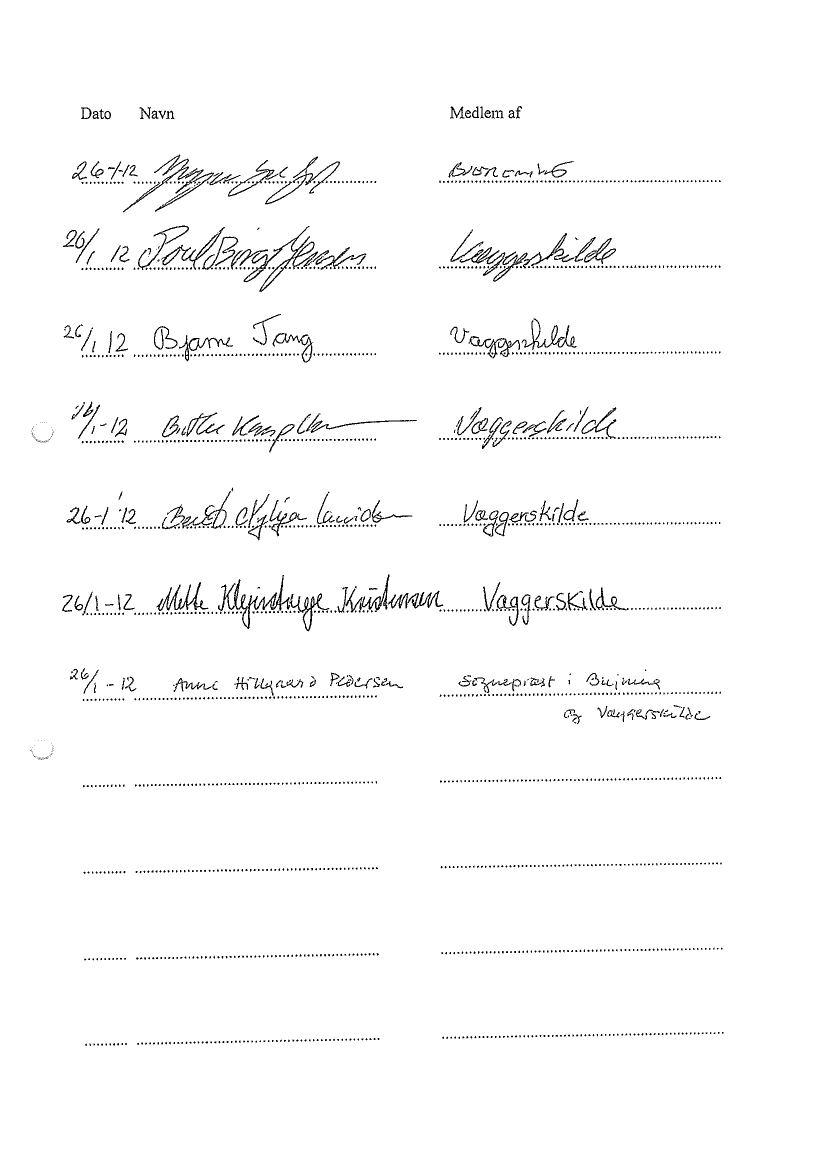 Dato Navn Medlem af
26-1-12
26/1 12 Poul Børge Jensen Væggerskilde
26/1 12 Bjarne Tang Væggerskilde
26/1-12 Væggerskilde
26-1 12 Væggerskilde
26/1-12 Mette Klejnstrup Kristensen Væggerskilde
26/1-12 Anne Hillgaard Pedersen Sognepræst i Bujning
og Væggerskilde